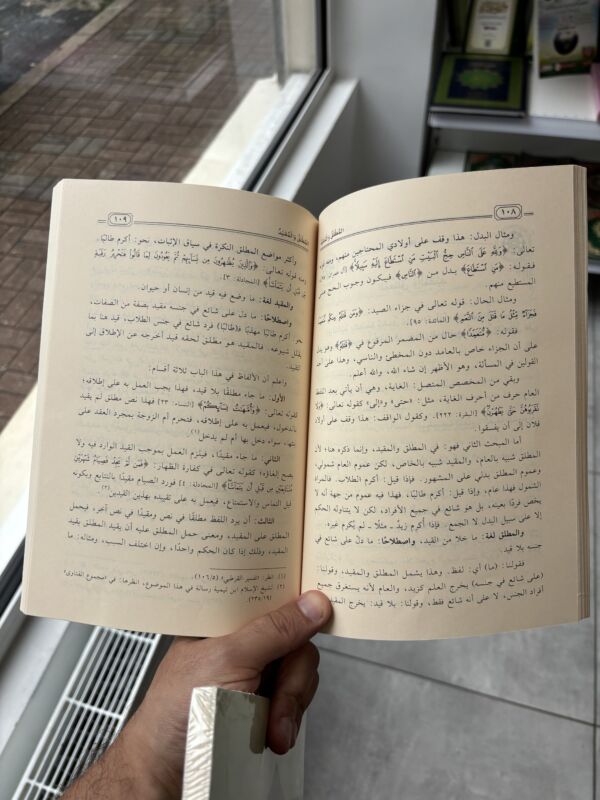 ١٠٨
المُطْلَقُ وَالمُقَيَّدُ
ومثال البدل: هذا وقف على أولادي المحتاجين منهم، ومنه قوله
تعالى: ﴿وَلِلَّهِ عَلَى ٱلنَّاسِ حِجُّ ٱلْبَيْتِ مَنِ ٱسْتَطَاعَ إِلَيْهِ سَبِيلًا﴾ [آل عمران:
فـقـولـه: ﴿مَنِ ٱسْتَطَاعَ﴾ بـدل مـن ﴿ٱلنَّاسِ﴾ فـيـكـون وجـوب الـحـج على
المستطيع منهم.
ومثال الحال: قوله تعالى في جزاء الصيد: ﴿وَمَن قَتَلَهُۥ مِنكُم مُّتَعَمِّدًا
فَجَزَآءٌ مِّثْلُ مَا قَتَلَ مِنَ ٱلنَّعَمِ﴾ [المائدة: ٩٥].
فقوله: ﴿مُّتَعَمِّدًا﴾ حال من المضمر المرفوع في ﴿قَتَلَهُۥ﴾ وهو يدل
على أن الجزاء خاص بالعامد دون المخطئ والناسي، وهذا على أحد
القولين في المسألة، وهو الأظهر إن شاء الله، والله أعلم.
وبقي من المخصص المتصل: الغاية، وهي أن يأتي بعد اللفظ
العام حرف من أحرف الغاية، مثل: «حتى» و«إلى» كقوله تعالى: ﴿وَلَا
تَقْرَبُوهُنَّ حَتَّىٰ يَطْهُرْنَ﴾ [البقرة: ٢٢٢]. وكقول الواقف: هذا وقف على أولاد
فلان إلى أن يفسقوا.
أما المبحث الثاني فهو: في المطلق والمقيد، وإنما ذكره هنا؛ لأن
المطلق شبيه بالعام، والمقيد شبيه بالخاص، لكن عموم العام شمولي،
وعموم المطلق بدلي على المشهور. فإذا قيل: أكرم الطلاب. فالمراد
الشمول فهذا عام، وإذا قيل: أكرم طالبًا. فهذا فيه عموم من جهة أنه لا
يخص فردًا بعينه، بل هو شائع في جميع الأفراد، لكن لا يتناوله الحكم
إلا على سبيل البدل لا الجمع. فإذا أكرم زيدً ـ مثلًا ـ لم يُكرم غيره.
والمطلق لغة: ما خلا من القيد، واصطلاحًا: ما دلّ على شائع في
جنسه بلا قيد.
فقولنا: (ما) أي: لفظ. وهذا يشمل المطلق والمقيد، وقولنا:
(على شائع في جنسه) يخرج العلم كزيد، والعام لأنه يستغرق جميع
أفراد الجنس، لا على أنه شائع فقط، وقولنا: بلا قيد: يخرج المقيد
١٠٩
المُطْلَقُ وَالمُقَيَّدُ
وأكثر مواضع المطلق النكرة في سياق الإثبات، نحو: أكرم طالبًا.
ومنه قوله تعالى: ﴿وَٱلَّذِينَ يُظَٰهِرُونَ مِن نِّسَآئِهِمْ ثُمَّ يَعُودُونَ لِمَا قَالُوا۟ فَتَحْرِيرُ رَقَبَةٍ
مِّن قَبْلِ أَن يَتَمَآسَّا﴾ [المجادلة: ٣].
والمقيد لغة: ما وضع فيه قيد من إنسان أو حيوان.
واصطلاحًا: ما دل على شائع في جنسه مقيد بصفة من الصفات،
نحو: أكرم طالبًا مهذبًا. فـ(طالبًا) فرد شائع في جنس الطلاب، قيد هنا بما
يقلل شيوعه. فالمقيد هو مطلق لحقه قيد أخرجه عن الإطلاق إلى
التقييد.
واعلم أن الألفاظ في هذا الباب ثلاثة أقسام:
الأول: ما جاء مطلقًا بلا قيد، فهذا يجب العمل به على إطلاقه؛
كقوله تعالى: ﴿وَأُمَّهَٰتُ نِسَآئِكُمْ﴾ [النساء: ٢٣] فهذا نص مطلق لم يقيد
بالدخول، فيعمل به على إطلاقه، فتحرم أم الزوجة بمجرد العقد على
بنتها، سواء دخل بها أم لم يدخل(١).
الثاني: ما جاء مقيدًا، فيلزم العمل بموجب القيد الوارد فيه ولا
يصح إلغاؤه؛ كقوله تعالى في كفارة الظهار: ﴿فَمَن لَّمْ يَجِدْ فَصِيَامُ شَهْرَيْنِ
مُتَتَابِعَيْنِ مِن قَبْلِ أَن يَتَمَآسَّا﴾ [المجادلة: ٤] فورد الصيام مقيدًا بالتتابع وبكونه
قبل التماس والاستمتاع، فيعمل به على تقييده بهذين القيدين(٢).
الثالث: أن يرد اللفظ مطلقًا في نص ومقيدًا في نص آخر، فيحمل
المطلق على المقيد، ومعنى حمل المطلق عليه أن يقيد المطلق بقيد
المقيد، وذلك إذا كان الحكم واحدًا، وإن اختلف السبب، ومثاله: ما
(١) انظر: «تفسير القرطبي» (١٠٦/٥).
(٢) لشيخ الإسلام ابن تيمية رسالة في هذا الموضوع، انظرها: في «مجموع الفتاوى»